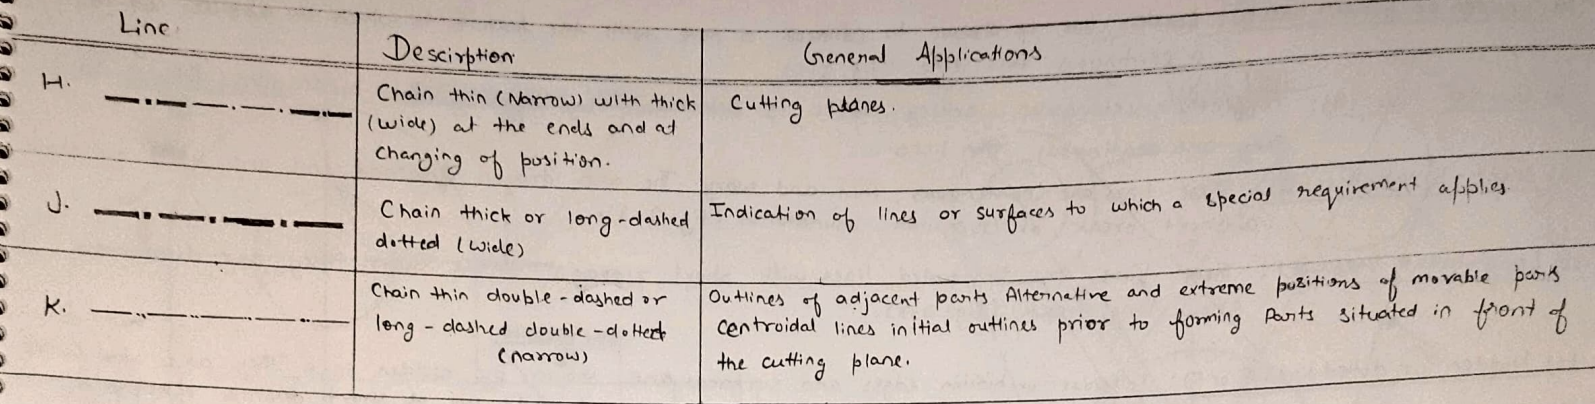 Line
Descirption
General Applications
H.
Chain thin (Narrow) with thick
(wide) at the ends and at
changing of position.
Cutting planes.
J.
Chain thick or long-dashed
dotted (wide)
Indication of lines or surfaces to which a special requirement applies.
K.
Chain thin double-dashed or
long-dashed double-dotted
(narrow)
Outlines of adjacent parts Alternative and extreme positions of movable parts
centroidal lines initial outlines prior to forming Parts situated in front of
the cutting plane.